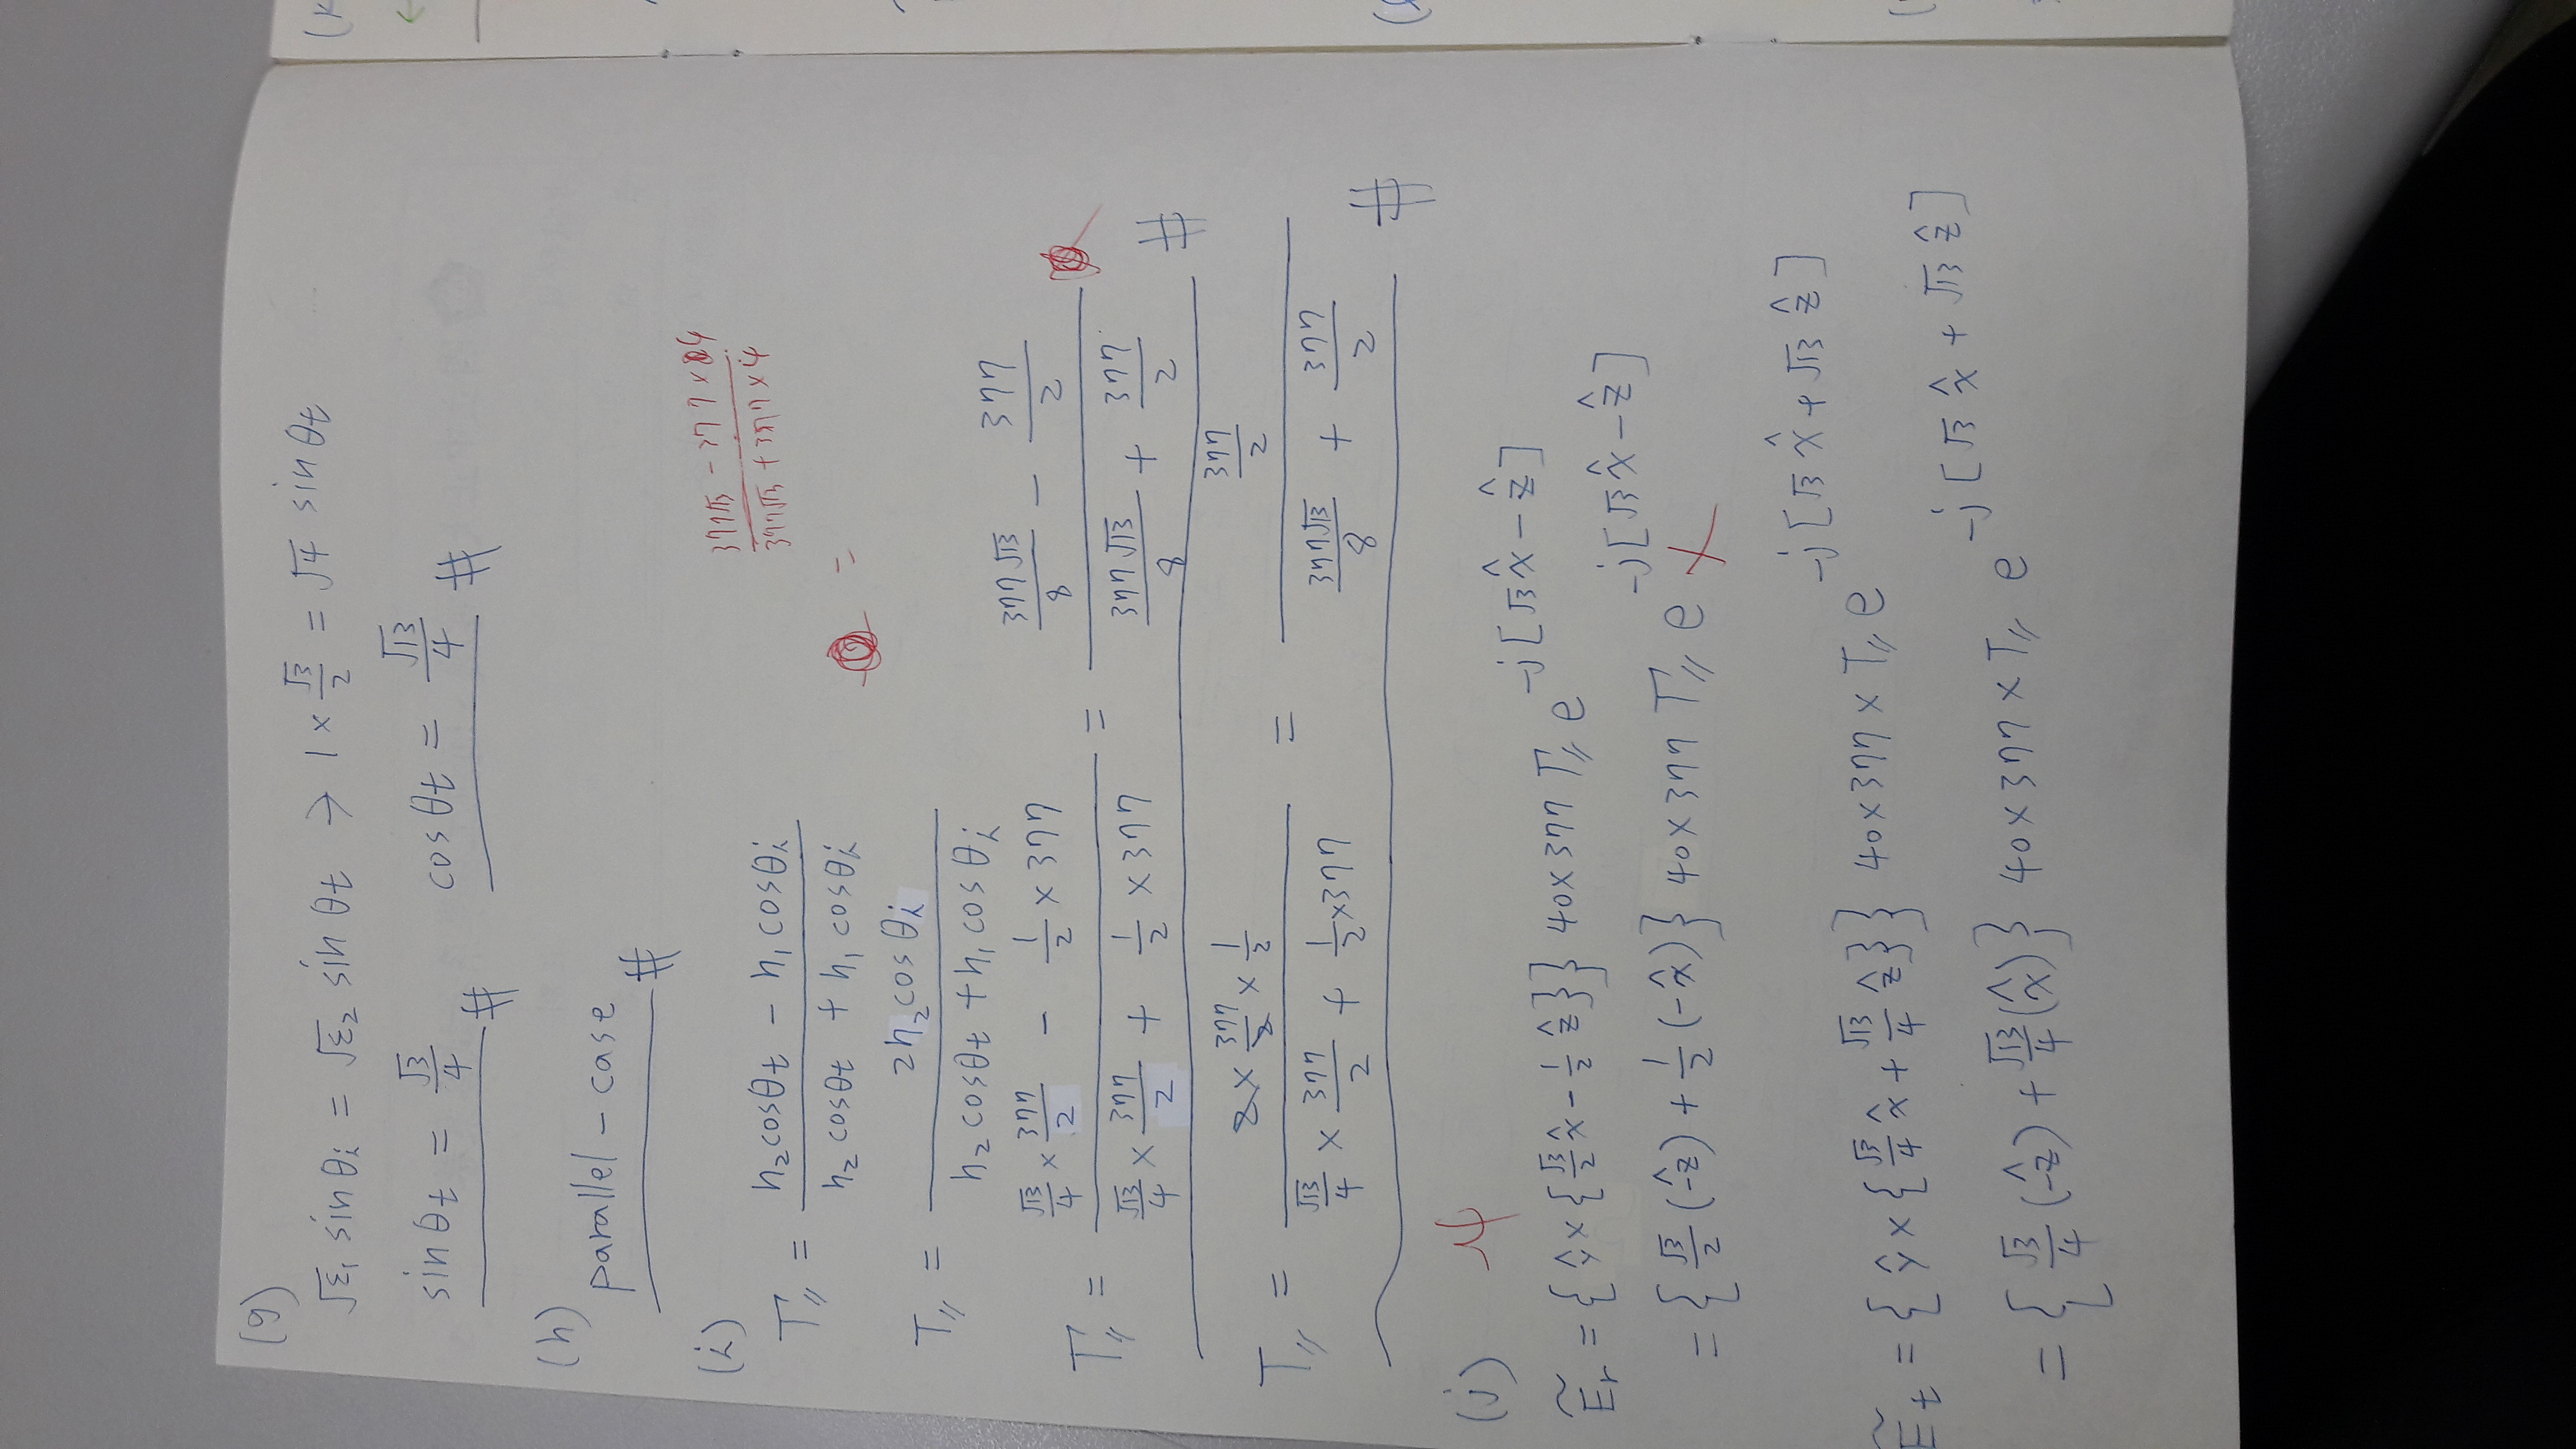 (g)
√ε₁ sinθi = √ε₂ sinθt → 1 × √3/2 = √4 sinθt
sinθt = √3/4 #    cosθt = √13/4 #
(h)
parallel - case #
(i)
(377√13 - 377×4)/(377√13 + 377×4)
Γ∥ = (η₂cosθt - η₁cosθi)/(η₂cosθt + η₁cosθi)
=
T∥ = 2η₂cosθi/(η₂cosθt + η₁cosθi)
Γ∥ = (√13/4 × 377/2 - 1/2 × 377)/(√13/4 × 377/2 + 1/2 × 377) = (377√13/8 - 377/2)/(377√13/8 + 377/2) #
T∥ = (2 × 377/2 × 1/2)/(√13/4 × 377/2 + 1/2 × 377) = (377/2)/(377√13/8 + 377/2) #
(j)
Ẽr = {ŷ × {√3/2 x̂ - 1/2 ẑ}} 40×377 Γ∥ e^{-j[√3x̂ - ẑ]}
= {√3/2 (-ẑ) + 1/2 (-x̂)} 40×377 Γ∥ e^{-j[√3x̂ - ẑ]}
Ẽt = {ŷ × {√3/4 x̂ + √13/4 ẑ}} 40×377×T∥ e^{-j[√3x̂ + √13ẑ]}
= {√3/4 (-ẑ) + √13/4 (x̂)} 40×377×T∥ e^{-j[√3x̂ + √13ẑ]}